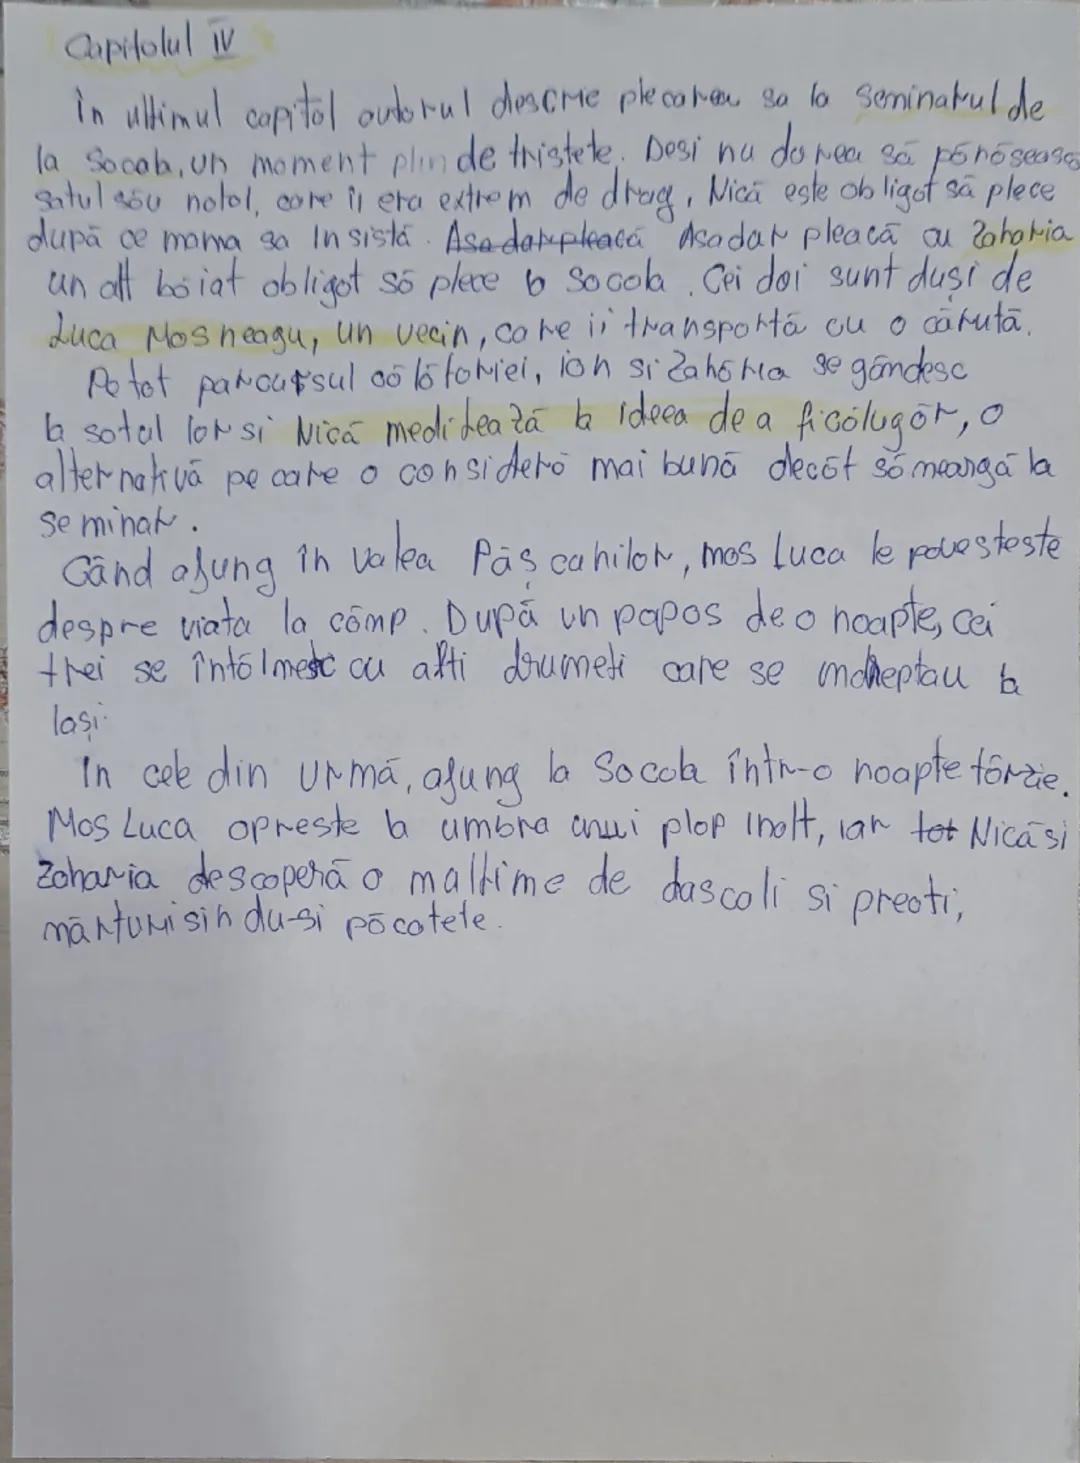 Capitolul IV
În ultimul capitol autorul descrie plecarea sa la seminarul de
la Socola, un moment plin de tristete. Desi nu dorea să părăsească
satul său natal, care îi era extrem de drag, Nică este obligat să plece
după ce mama sa insistă. Asadar pleacă Asadar pleacă cu Zaharia
un alt băiat obligat să plece la Socola. Cei doi sunt duși de
Luca Mosneagu, un vecin, care ii transportă cu o cărută.
Pe tot parcursul călătoriei, ion si Zaharia se gândesc
la satul lor si Nică meditează la ideea de a fi călugăr, o
alternativă pe care o consideră mai bună decât să meargă la
seminar.
Când ajung în valea Pășcanilor, mos Luca le povesteste
despre viata la câmp. După un popos de o noapte, cei
trei se întâlnesc cu alti drumeti care se îndreptau la
Iași.
În cele din urmă, ajung la Socola într-o noapte târzie.
Mos Luca opreste la umbra unui plop inalt, iar tot Nică si
Zaharia descoperă o multime de dascoli si preoti,
mărturisindu-si păcatele.